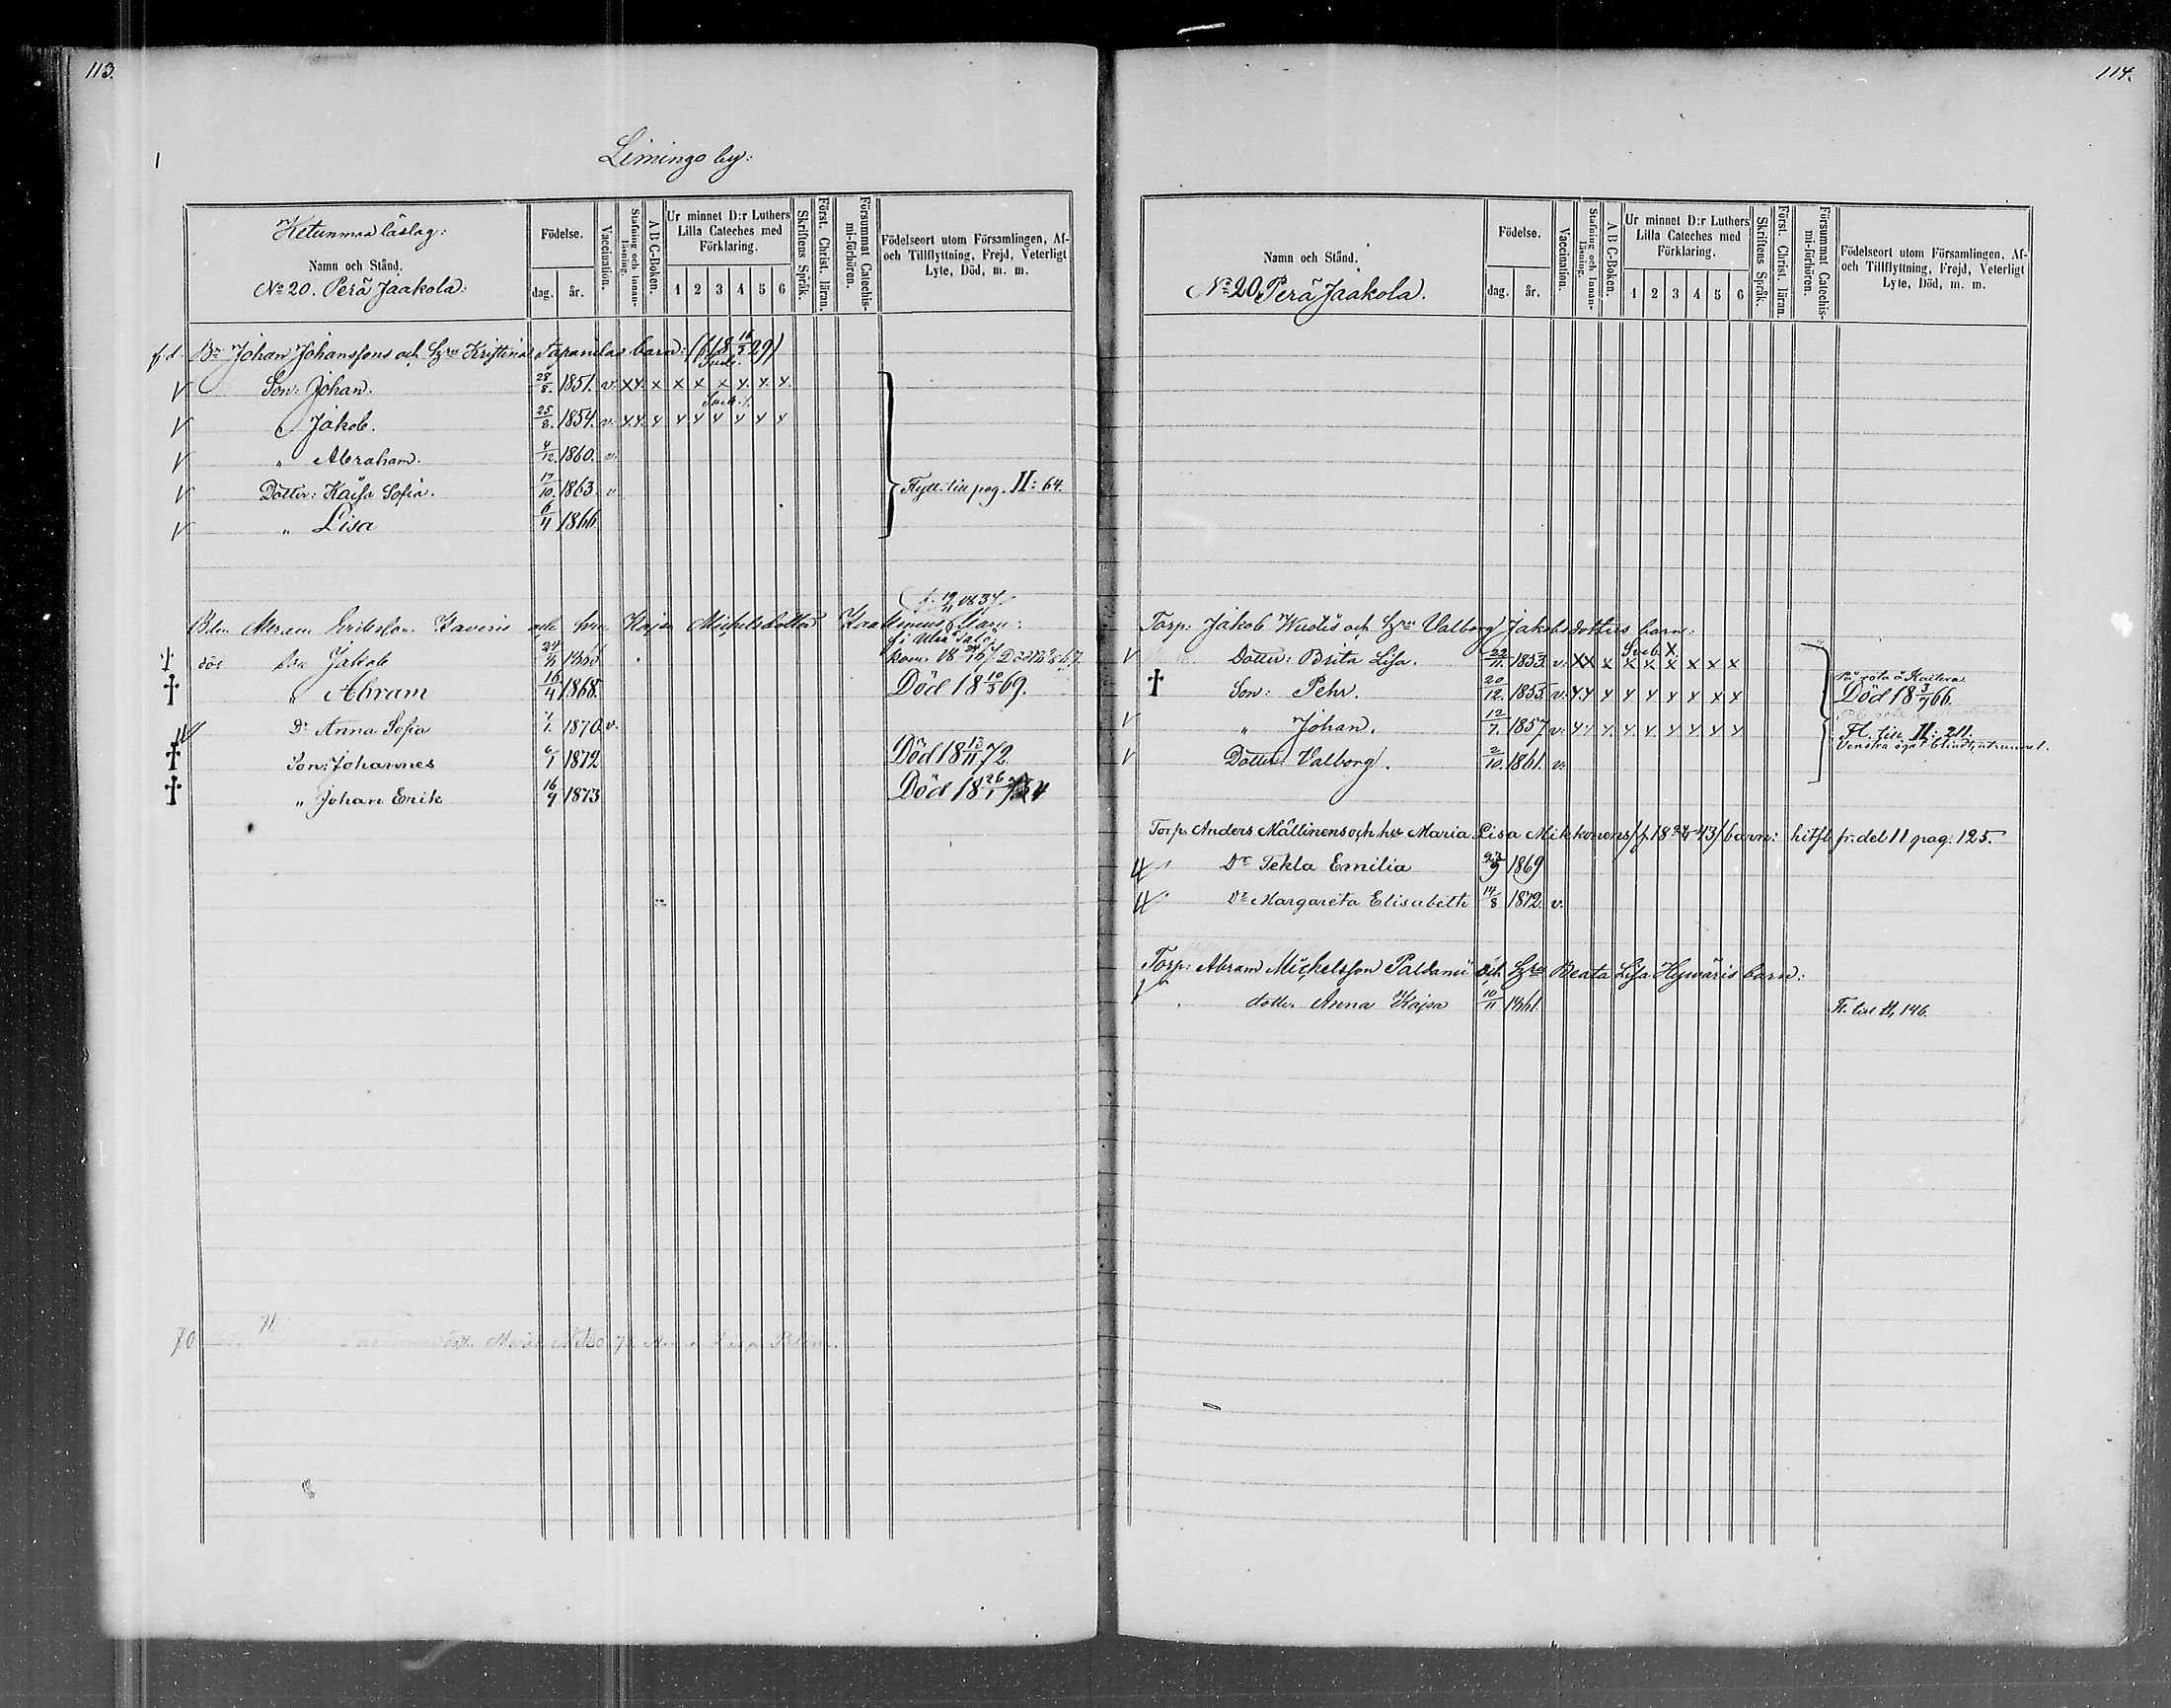 113.
Limingo by:
Ketunmaa läslag:
Namn och Stånd.
No 20. Perä Jaakola:
Födelse.
dag. år.
Vaccination.
Stafning och Innan-läsning.
A B C-Boken.
Ur minnet D:r Luthers Lilla Cateches med Förklaring.
1 2 3 4 5 6
Skriftens Språk.
Först. Christ. läran.
Försummat Catechis-mi-förhören.
Födelseort utom Församlingen, Af- och Tillflyttning, Frejd, Veterligt Lyte, Död, m. m.
f. d. Bn Johan Johanssons och Hru Kristina Tapanilas barn: (f. 18 16/5 29)
V Son: Johan. 28/8. 1851. v. x x. x x x x x. x. x.
V Jakob. 25/8. 1854. v. x. x. x x x x x x x
V " Abraham. 4/12. 1860. v.
V Dotter: Kaisa Sofia. 17/10. 1863. v Flytt. till pag. II: 64.
V " Lisa 6/4 1866
f. 19/11 1837
Bdn Abram Eriksson Kaveris och hru Kajsa Michelsdotter barn:
† Son Jakob
† " Abram 16/4 1868. Död 18 10/5 69.
Dr Anna Sofia 7/1. 1870. v.
† Son: Johannes 6/1 1872 Död 18 13/11 72.
† " Johan Erik 16/9 1873 Död 18 26/1 74
70
114.
Namn och Stånd.
No 20. Perä Jaakola.
Födelse.
dag. år.
Vaccination.
Stafning och Innan-läsning.
A B C-Boken.
Ur minnet D:r Luthers Lilla Cateches med Förklaring.
1 2 3 4 5 6
Skriftens Språk.
Först. Christ. läran.
Försummat Catechis-mi-förhören.
Födelseort utom Församlingen, Af- och Tillflyttning, Frejd, Veterligt Lyte, Död, m. m.
Torp: Jakob Wuotis och Hru Valborg Jakobsdotters barn:
Sveb. X.
V Dotter: Brita Lisa. 22/11. 1853. v. x x x x x x x x x
† Son: Pehr. 20/12. 1855. v. x. x x x x x x x x Död 18 3/7 66.
V " Johan. 12/7. 1857. v. x x x. x x x x x x Fl. till II: 211.
Venstra ögat blindt,
V Dotter: Valborg. 2/10. 1861. v.
Torp. Anders Mällinens och hu Maria Lisa Mikkonens barn: hitfl. fr. del II pag. 125.
Dr Tekla Emilia 1869
Dr Margareta Elisabeth 14/8 1872. v.
Torp: Abram Michelsson Paldanii och Hru Beata Lisa Hyväris barn:
dotter Anna Kajsa 10/11 1861 Fl. till II, 146.